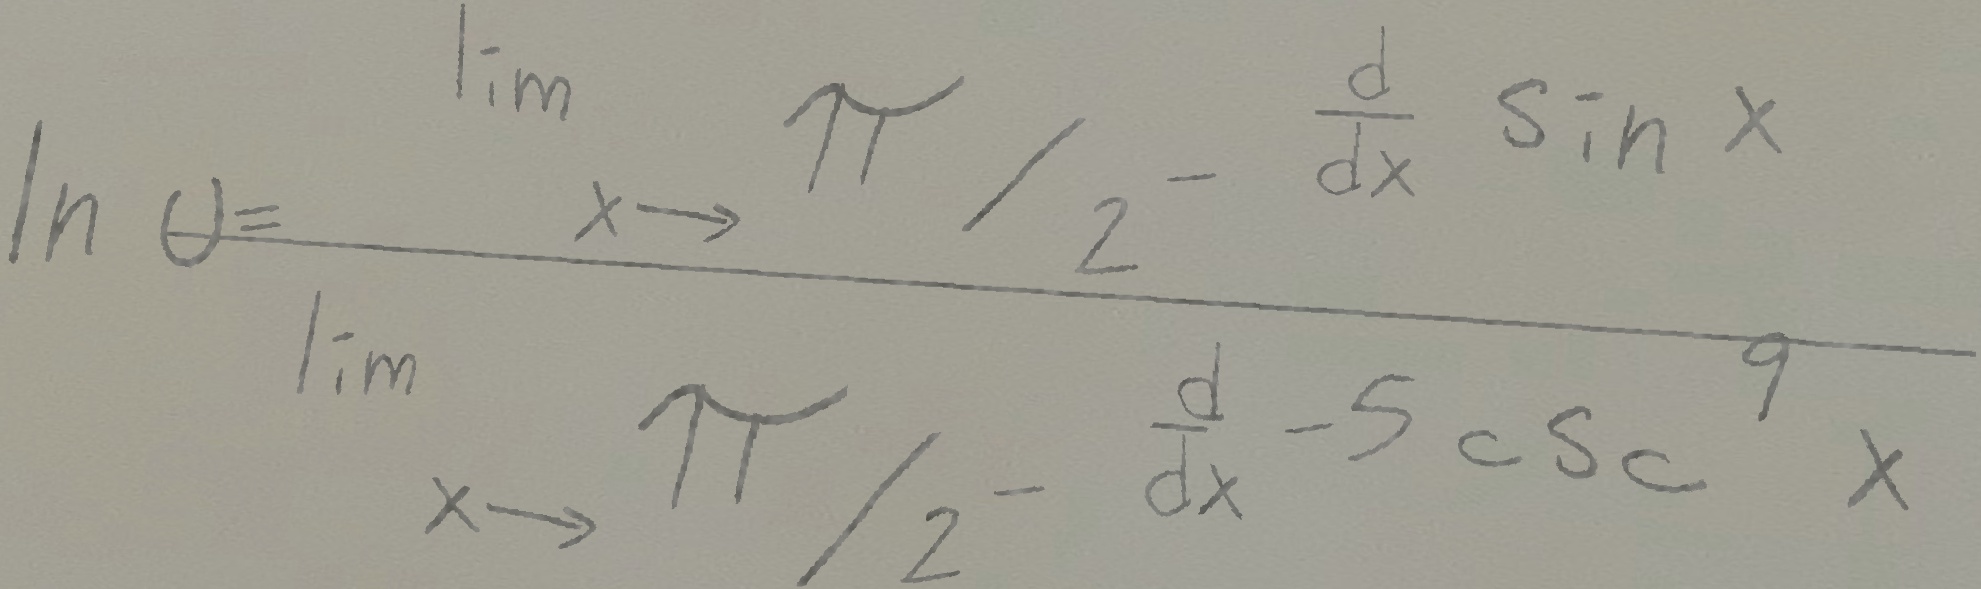 ln υ= lim x→π/2⁻ d/dx sin x
lim x→π/2⁻ d/dx -5 csc⁹ x